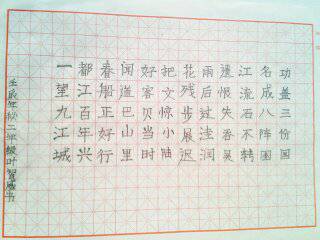 功盖三份国
名成八阵图
江流石不转
遗恨失吞吴
雨后过洼润
花残步展迟
把文惊小陆
好客贝当时
闻道巴山里
春船正好行
都江百年兴
一望九江城
年秋二年级叶智威书